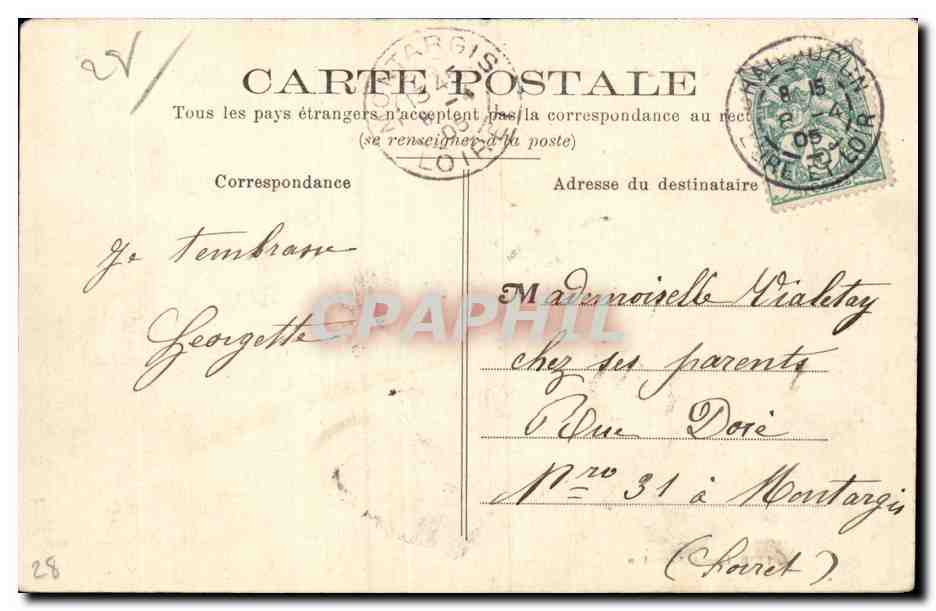 28
CARTE POSTALE
Tous les pays étrangers n'acceptent pas la correspondance au rect
(se renseigner à la poste)
MONTARGIS
LOIRET
CHATEAUDUN
8 15
2 -4
05
EURE ET LOIR
Correspondance
Adresse du destinataire
Je t'embrasse
Georgette
Mademoiselle Vialetay
chez ses parents
Rue Doré
Nro 31 à Montargis
(Loiret)
CPAPHIL
28